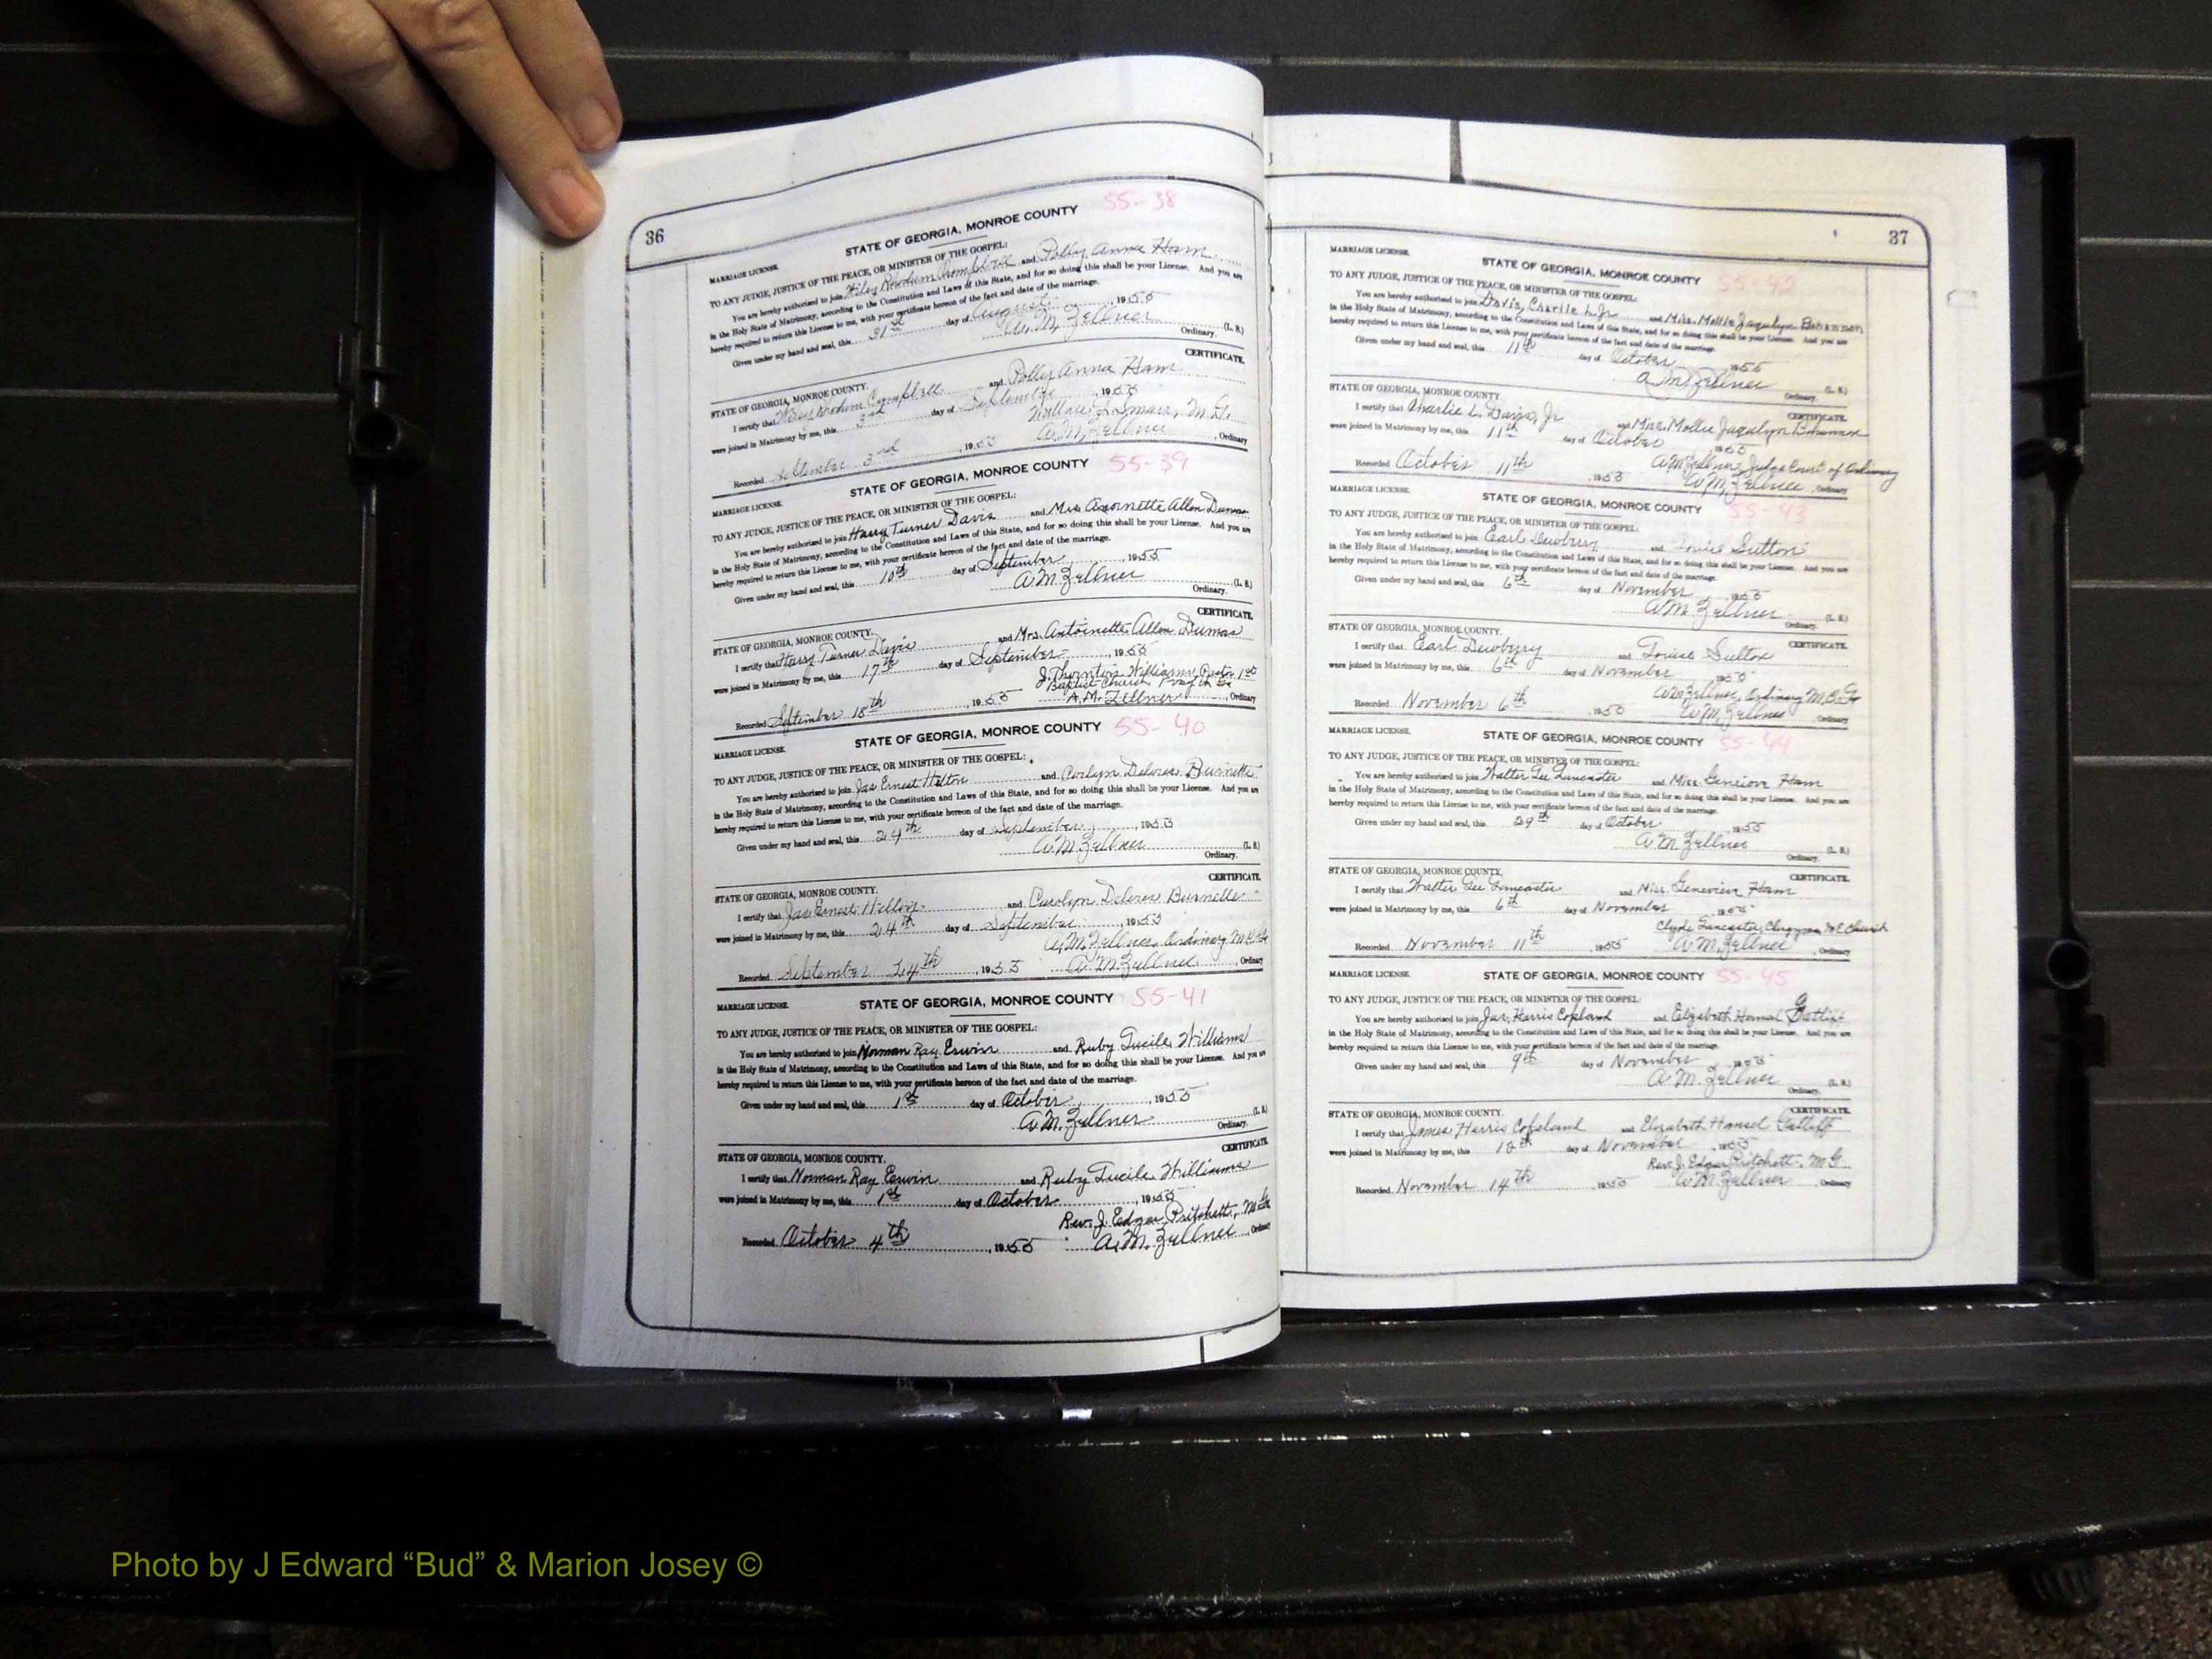 36
STATE OF GEORGIA, MONROE COUNTY 55-38
MARRIAGE LICENSE.
TO ANY JUDGE, JUSTICE OF THE PEACE, OR MINISTER OF THE GOSPEL:
You are hereby authorized to join Wiley Campbell and Polly Anna Ham
in the Holy State of Matrimony, according to the Constitution and Laws of this State, and for so doing this shall be your License. And you are
hereby required to return this License to me, with your certificate hereof of the fact and date of the marriage.
Given under my hand and seal, this 31st day of August, 1955
A. M. Zellner (L. S.)
Ordinary.
CERTIFICATE.
STATE OF GEORGIA, MONROE COUNTY.
I certify that Wiley Campbell and Polly Anna Ham
were joined in Matrimony by me, this 3rd day of September, 1955
Wallace M. G.
Recorded September 3rd, 1955 A. M. Zellner, Ordinary
STATE OF GEORGIA, MONROE COUNTY 55-39
MARRIAGE LICENSE.
TO ANY JUDGE, JUSTICE OF THE PEACE, OR MINISTER OF THE GOSPEL:
You are hereby authorized to join Harry Turner Davis and Mrs. Allen Dumas
in the Holy State of Matrimony, according to the Constitution and Laws of this State, and for so doing this shall be your License. And you are
hereby required to return this License to me, with your certificate hereon of the fact and date of the marriage.
Given under my hand and seal, this 10th day of September, 1955
A. M. Zellner (L. S.)
Ordinary.
CERTIFICATE.
STATE OF GEORGIA, MONROE COUNTY.
I certify that Harry Turner Davis and Mrs. Antoinette Allen Dumas
were joined in Matrimony by me, this 17th day of September, 1955
J. Thornton Williams, Pastor 1st
Baptist Church Forsyth Ga
Recorded September 18th, 1955 A. M. Zellner, Ordinary
STATE OF GEORGIA, MONROE COUNTY 55-40
MARRIAGE LICENSE.
TO ANY JUDGE, JUSTICE OF THE PEACE, OR MINISTER OF THE GOSPEL:
You are hereby authorized to join Jas Ernest Helton and Carolyn Delores Burnette
in the Holy State of Matrimony, according to the Constitution and Laws of this State, and for so doing this shall be your License. And you are
hereby required to return this License to me, with your certificate hereon of the fact and date of the marriage.
Given under my hand and seal, this 24th day of September, 1955
A. M. Zellner (L. S.)
Ordinary.
CERTIFICATE.
STATE OF GEORGIA, MONROE COUNTY.
I certify that Jas Ernest Helton and Carolyn Delores Burnette
were joined in Matrimony by me, this 24th day of September, 1955
A. M. Zellner, Ordinary M. C. Ga
Recorded September 24th, 1955 A. M. Zellner, Ordinary
MARRIAGE LICENSE. STATE OF GEORGIA, MONROE COUNTY 55-41
TO ANY JUDGE, JUSTICE OF THE PEACE, OR MINISTER OF THE GOSPEL:
You are hereby authorized to join Norman Ray Erwin and Ruby Lucile Williams
in the Holy State of Matrimony, according to the Constitution and Laws of this State, and for so doing this shall be your License. And you are
hereby required to return this License to me, with your certificate hereon of the fact and date of the marriage.
Given under my hand and seal, this 1st day of October, 1955
A. M. Zellner (L. S.)
Ordinary.
CERTIFICATE.
STATE OF GEORGIA, MONROE COUNTY.
I certify that Norman Ray Erwin and Ruby Lucile Williams
were joined in Matrimony by me, this 1st day of October, 1955
Rev. J. Edgar Pritchett, M. G.
Recorded October 4th, 1955 A. M. Zellner, Ordinary
37
MARRIAGE LICENSE. STATE OF GEORGIA, MONROE COUNTY 55-42
TO ANY JUDGE, JUSTICE OF THE PEACE, OR MINISTER OF THE GOSPEL:
You are hereby authorized to join Davis, Charlie L. Jr and Miss Mollie Jaqulyn
in the Holy State of Matrimony, according to the Constitution and Laws of this State, and for so doing this shall be your License. And you are
hereby required to return this License to me, with your certificate hereon of the fact and date of the marriage.
Given under my hand and seal, this 11th day of October 1955
A M Zellner (L. S.)
Ordinary.
CERTIFICATE.
STATE OF GEORGIA, MONROE COUNTY.
I certify that Charlie L. Davis, Jr and Miss Mollie Jaqulyn
were joined in Matrimony by me, this 11th day of October 1955
A M Zellner, Judge Court of Ordinary
Recorded October 11th, 1955 A. M. Zellner, Ordinary
MARRIAGE LICENSE. STATE OF GEORGIA, MONROE COUNTY 55-43
TO ANY JUDGE, JUSTICE OF THE PEACE, OR MINISTER OF THE GOSPEL:
You are hereby authorized to join Earl Dewberry and Louise Sutton
in the Holy State of Matrimony, according to the Constitution and Laws of this State, and for so doing this shall be your License. And you are
hereby required to return this License to me, with your certificate hereon of the fact and date of the marriage.
Given under my hand and seal, this 6th day of November, 1955
A. M. Zellner (L. S.)
Ordinary.
STATE OF GEORGIA, MONROE COUNTY.
CERTIFICATE.
I certify that Earl Dewberry and Louise Sutton
were joined in Matrimony by me, this 6th day of November 1955
A. M. Zellner, Ordinary M. C. Ga
Recorded November 6th, 1955 A. M. Zellner, Ordinary
MARRIAGE LICENSE. STATE OF GEORGIA, MONROE COUNTY 55-44
TO ANY JUDGE, JUSTICE OF THE PEACE, OR MINISTER OF THE GOSPEL:
You are hereby authorized to join Walter Lee Lancaster and Miss Ham
in the Holy State of Matrimony, according to the Constitution and Laws of this State, and for so doing this shall be your License. And you are
hereby required to return this License to me, with your certificate hereon of the fact and date of the marriage.
Given under my hand and seal, this 29th day of October 1955
A M Zellner (L. S.)
Ordinary.
STATE OF GEORGIA, MONROE COUNTY.
CERTIFICATE.
I certify that Walter Lee Lancaster and Miss. Genevieve Ham
were joined in Matrimony by me, this 6th day of November 1955
Clyde Lancaster, Clergyman Church
Recorded November 11th 1955 A. M. Zellner, Ordinary
MARRIAGE LICENSE. STATE OF GEORGIA, MONROE COUNTY 55-45
TO ANY JUDGE, JUSTICE OF THE PEACE, OR MINISTER OF THE GOSPEL:
You are hereby authorized to join Jas. Harris Copeland and Elizabeth Hansel
in the Holy State of Matrimony, according to the Constitution and Laws of this State, and for so doing this shall be your License. And you are
hereby required to return this License to me, with your certificate hereon of the fact and date of the marriage.
Given under my hand and seal, this 9th day of November, 1955
A. M. Zellner (L. S.)
Ordinary.
CERTIFICATE.
STATE OF GEORGIA, MONROE COUNTY.
I certify that James Harris Copeland and Elizabeth Hansel
were joined in Matrimony by me, this 12th day of November, 1955
Rev. J. Edgar Pritchett, M G
Recorded November 14th, 1955 A. M. Zellner, Ordinary
Photo by J Edward “Bud” & Marion Josey ©